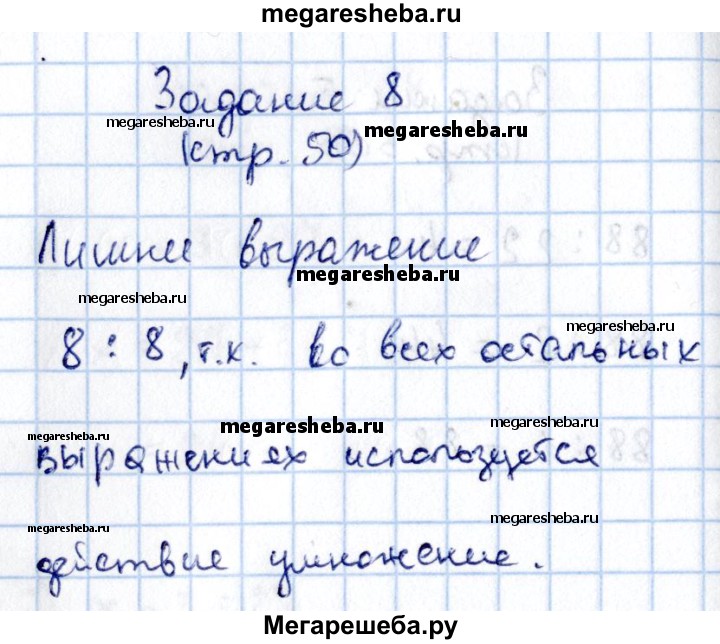 megaresheba.ru
Задание 8
megaresheba.ru
megaresheba.ru
(стр. 50)
Лишнее выражение
megaresheba.ru
megaresheba.ru
megaresheba.ru
8 : 8, т.к. во всех остальных
megaresheba.ru
megaresheba.ru
megaresheba.ru
выражениях используется
megaresheba.ru
megaresheba.ru
действие умножение.
Мегарешеба.ру